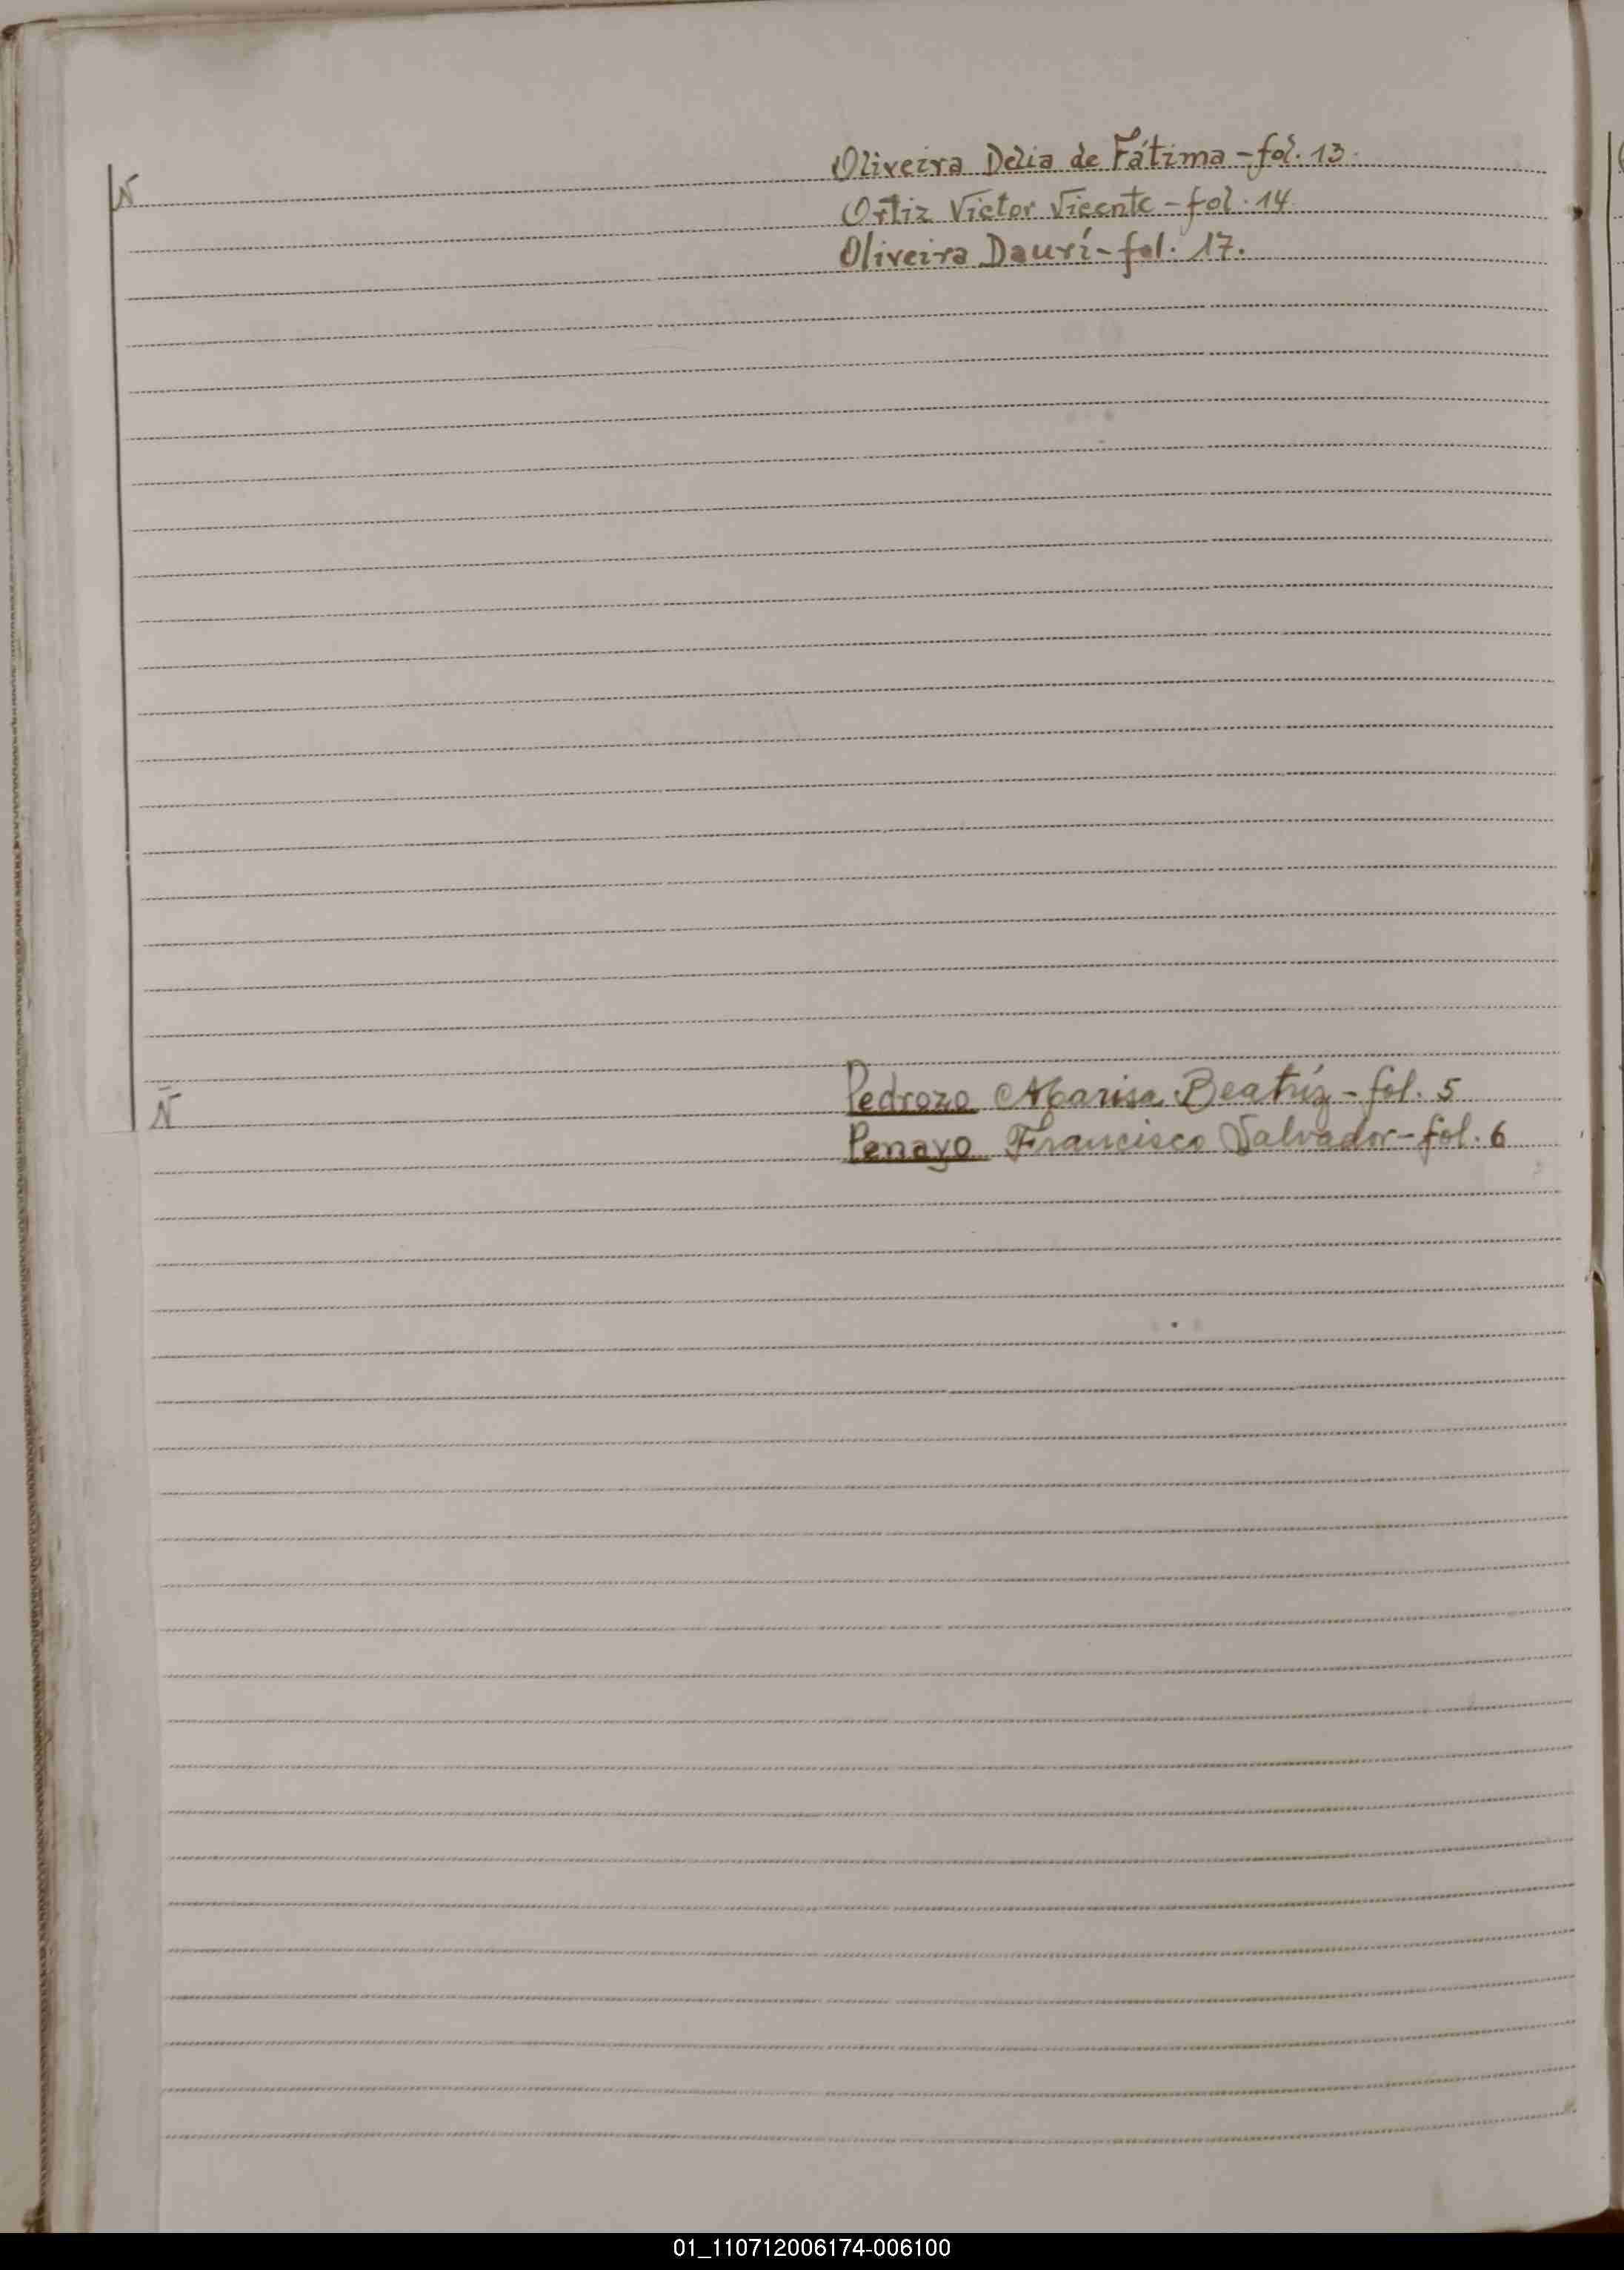 N
Oliveira Delia de Fátima - fol. 13.
Ortiz Victor Vicente - fol. 14
Oliveira Daurí - fol. 17.
Ñ
Pedrozo Marisa Beatríz - fol. 5
Penayo Francisco Salvador - fol. 6
01_110712006174-006100